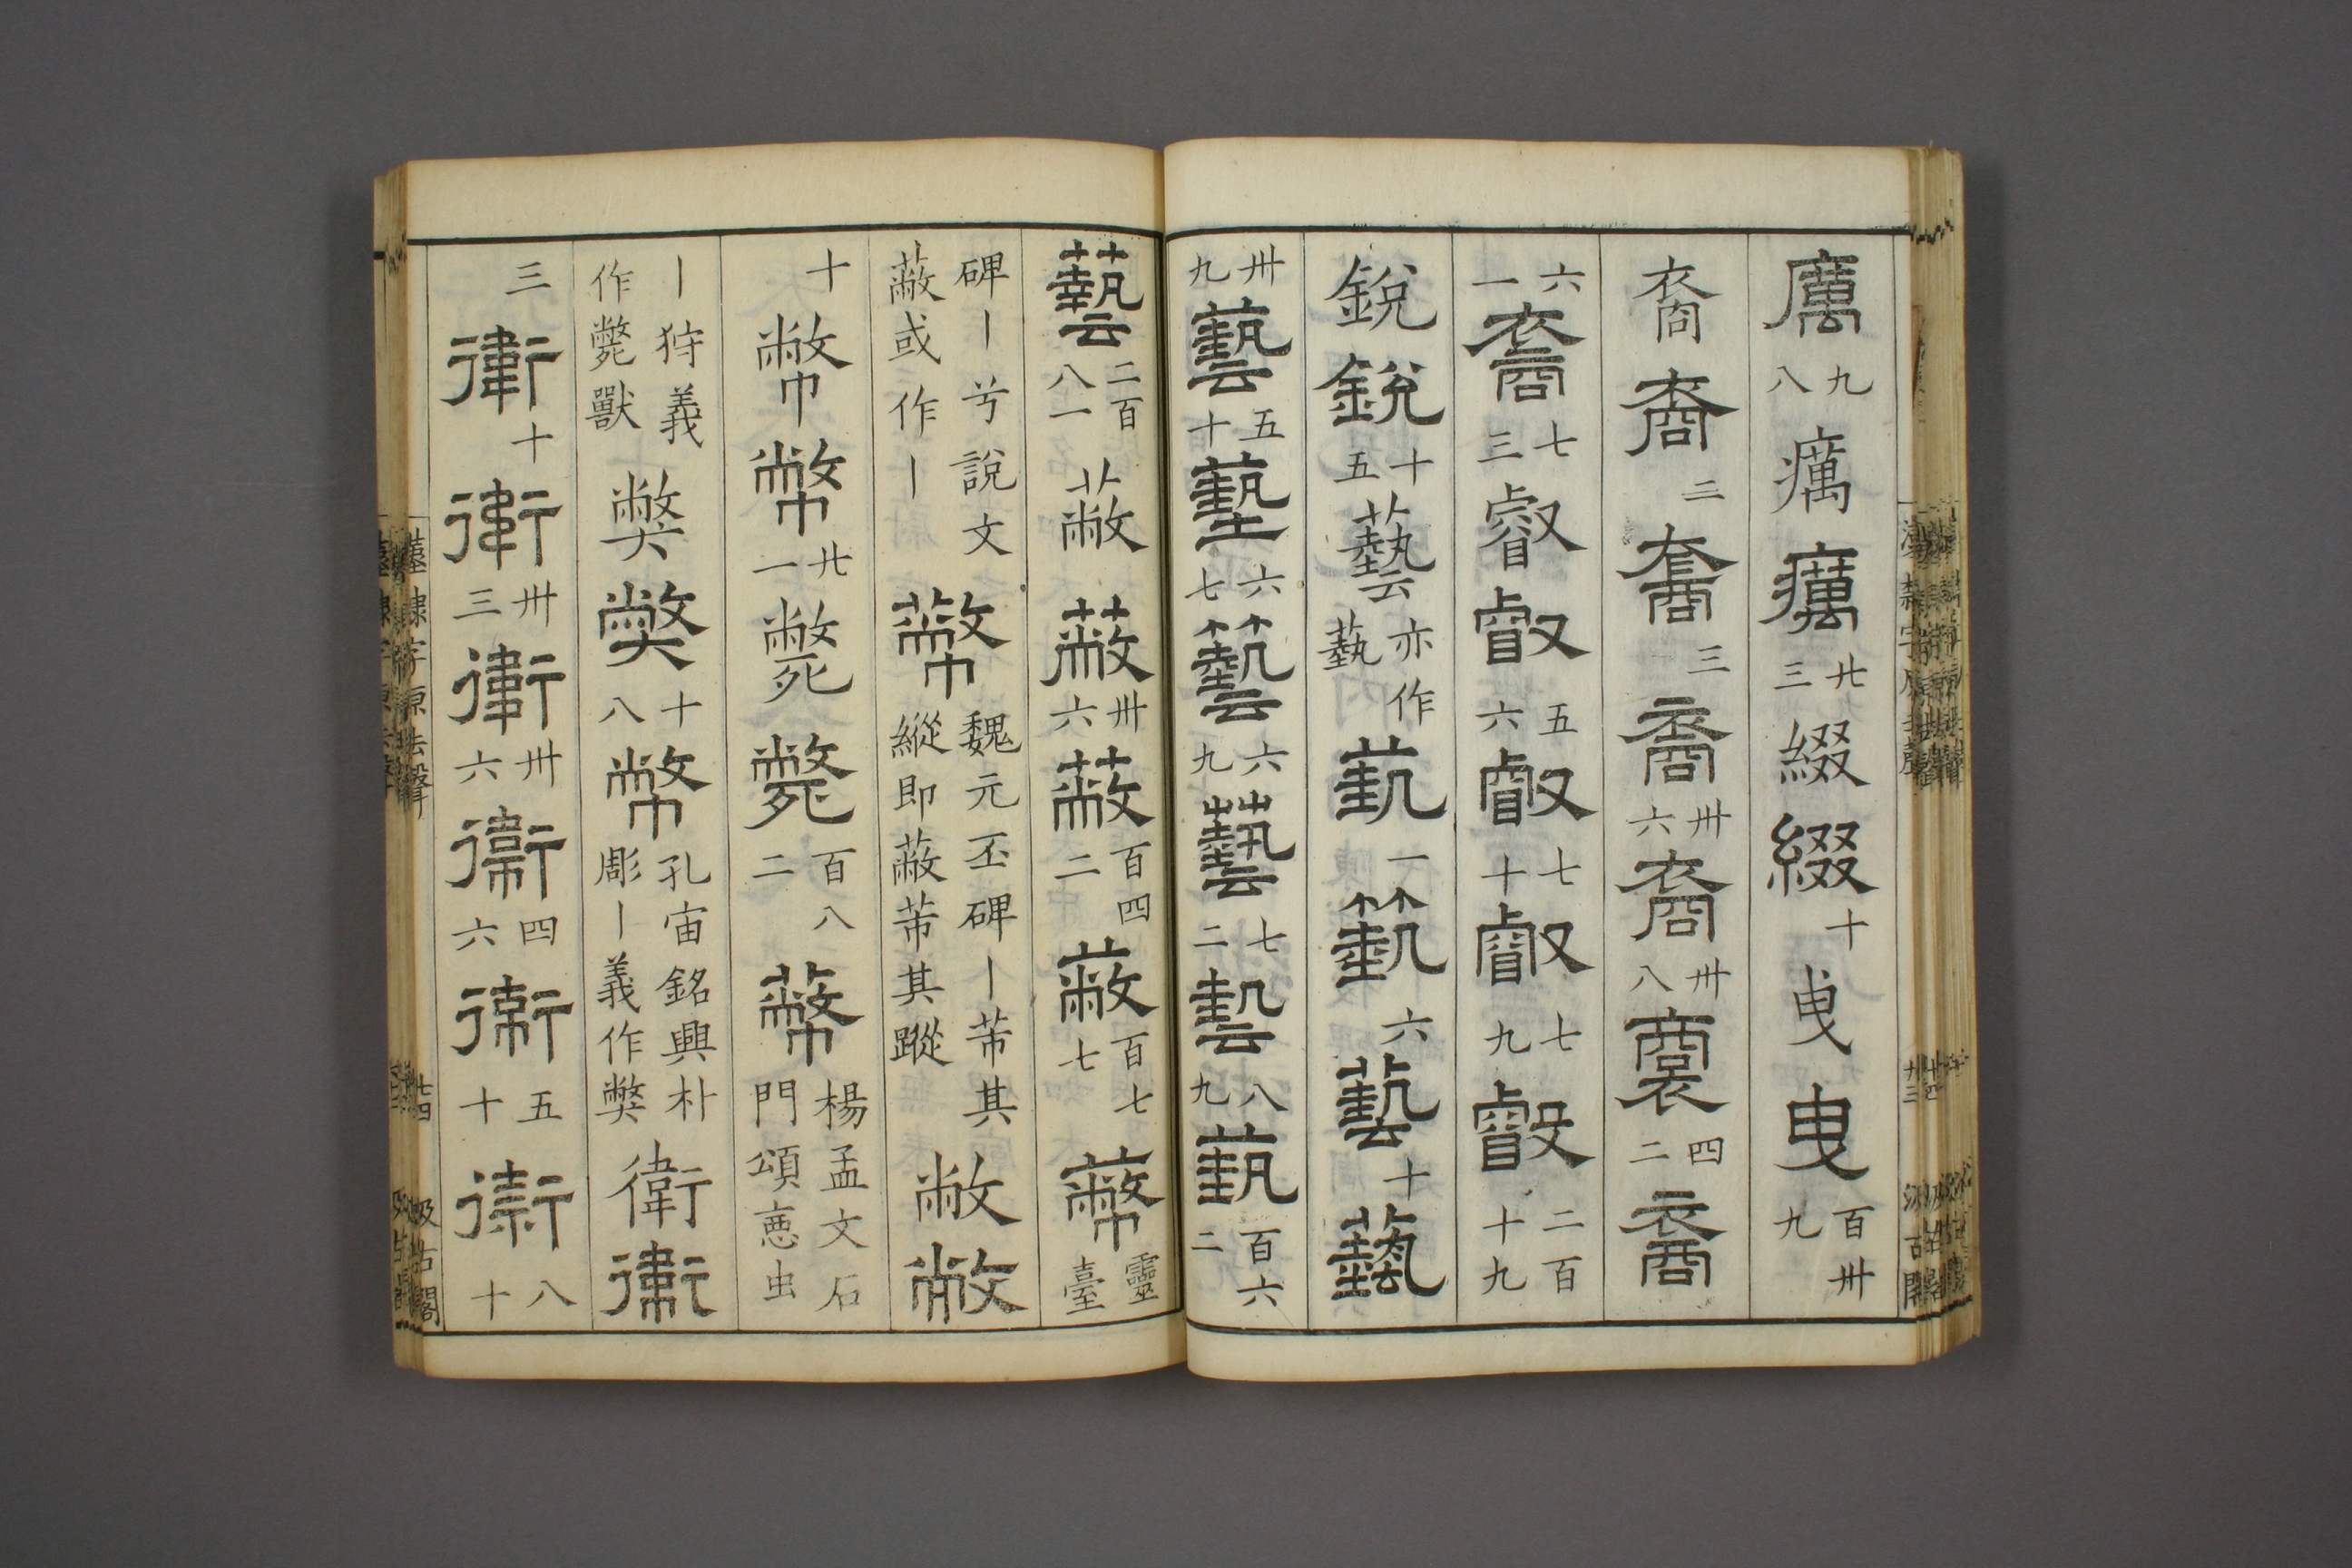 厲九八癘癘廿三綴綴十曳曳百卅九
裔裔二裔三裔卅六裔卅八裔四二裔
六一裔七三叡叡五六叡七十叡七九叡二百十九
銳銳十五藝亦作蓺藝一藝六藝十藝
卅九藝五十藝六七藝六九藝七二藝八九藝百六二
藝二百八一蔽蔽卅六蔽百四二蔽百七七蔽靈臺
碑丨兮說文蔽或作丨蔽魏元丕碑丨芾其縱即蔽芾其蹤敝敝
十幣幣廿一斃斃百八二幣楊孟文石門頌惡虫
丨狩義作斃獸獘獘十八幣孔宙銘興朴彫丨義作弊衛衛
三衛十衛卅三衛卅六衛四六衛五十衛八十
漢隸字原去聲 廿三 汲古閣
漢隸字原去聲 七四 汲古閣